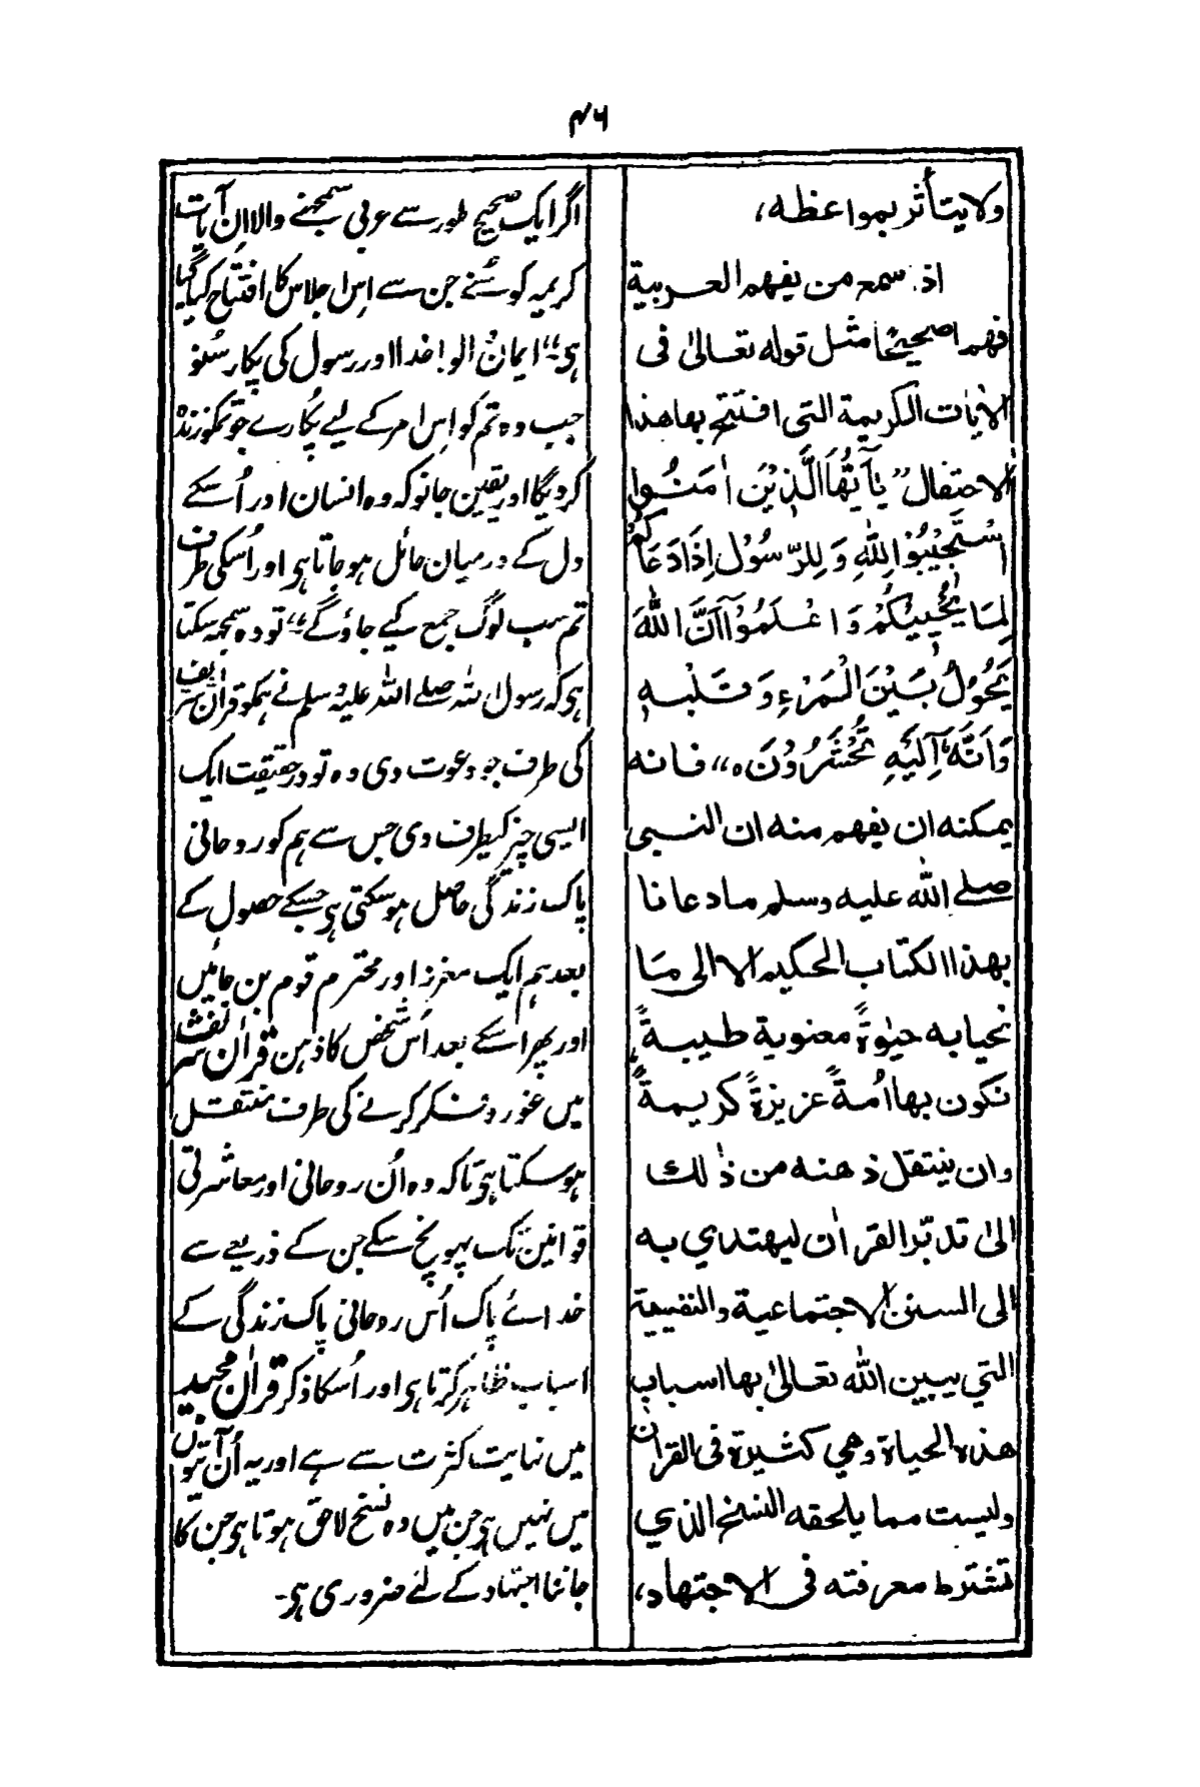 ۴۶
ولا يتأثر بمواعظه،
اذ سمع من يفهم العربية
فهما صحيحًا مثل قوله تعالىٰ فى
الاٰيات الكريمة التى افتتح بها هذا
الاحتفال ”يٰٓاَيُّهَا الَّذِيْنَ اٰمَنُوا
اسْتَجِيْبُوْا لِلّٰهِ وَلِلرَّسُوْلِ اِذَا دَعَاكُمْ
لِمَا يُحْيِيْكُمْ وَاعْلَمُوْٓا اَنَّ اللّٰهَ
يَحُوْلُ بَيْنَ الْمَرْءِ وَقَلْبِهٖ
وَاَنَّهٗٓ اِلَيْهِ تُحْشَرُوْنَ ه“ فانه
يمكنه ان يفهم منه ان النبى
صلے الله عليه وسلم ما دعانا
بهذا الكتاب الحكيم الا الى مَا
نحيا به حيٰوةً معنوية طيبةً
نكون بها اُمةً عزيزةً كريمةً
وان ينتقل ذهنه من ذٰلك
الىٰ تدبّر القراٰن ليهتدي به
الى السنن الاجتماعية والنفسية
التي يبين الله تعالىٰ بها اسباب
هذه الحياة وهي كثيرة فى القراٰن
وليست مما يلحقه النسخ الذي
تشترط معرفته فى الاجتهاد،
اگر ایک صحیح طور سے عربی سمجھنے والا اِن آیات
کریمہ کو سُنے جن سے اِس اجلاس کا افتتاح کیا گیا
ہی ”ایمان والو! خدا اور رسول کی پکار سُنو
جب وہ تم کو اِس امر کے لیے پُکارے جو تمکو زندہ
کردیگا اور یقین جانو کہ وہ انسان اور اُسکے
دل کے درمیان حائل ہوجاتا ہی اور اُسکی طرف
تم سب لوگ جمع کیے جاؤگے“ تو وہ سمجھ سکتا
ہی کہ رسول اللہ صلے اللہ علیہ وسلم نے ہمکو قراٰن شریف
کی طرف جو دعوت دی وہ تو درحقیقت ایک
ایسی چیز کیطرف دی جس سے ہم کو روحانی
پاک زندگی حاصل ہوسکتی ہی جسکے حصول کے
بعد ہم ایک معزز اور محترم قوم بن جائیں
اور پھر اسکے بعد اُس شخص کا ذہن قراٰن شریف
میں غور و فکر کرنے کی طرف منتقل
ہوسکتا ہی تاکہ وہ اُن روحانی اور معاشرتی
قوانین تک پہونچ سکے جن کے ذریعے سے
خدائے پاک اُس روحانی پاک زندگی کے
اسباب ظاہر کرتا ہی اور اُسکا ذکر قراٰن مجید
میں نہایت کثرت سے ہے اور یہ اُن آیتوں
میں نہیں ہی جن میں وہ نسخ لاحق ہوتا ہی جن کا
جاننا اجتہاد کے لئے ضروری ہی۔